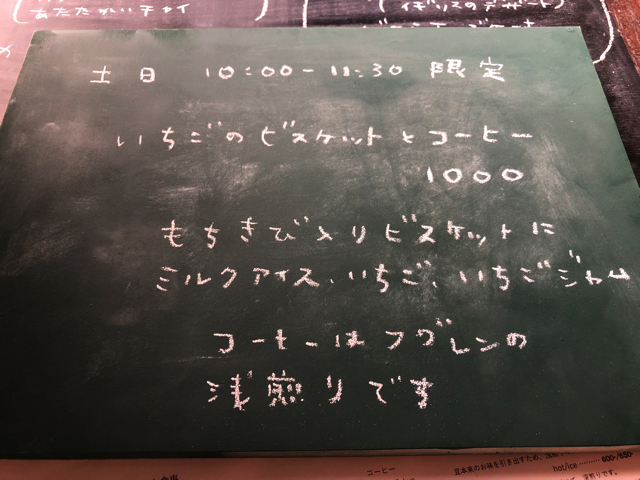 あたたかいチャイ
(イギリスのデザート)
土日 10:00-11:30 限定
いちごのビスケットとコーヒー
1000
もちきび入りビスケットに
ミルクアイス、いちご、いちごジャム
コーヒーはフグレンの
浅煎りです
コーヒー
豆本来のお味を引き出すため、
hot/ice ········· 600-/650-
深煎りです。